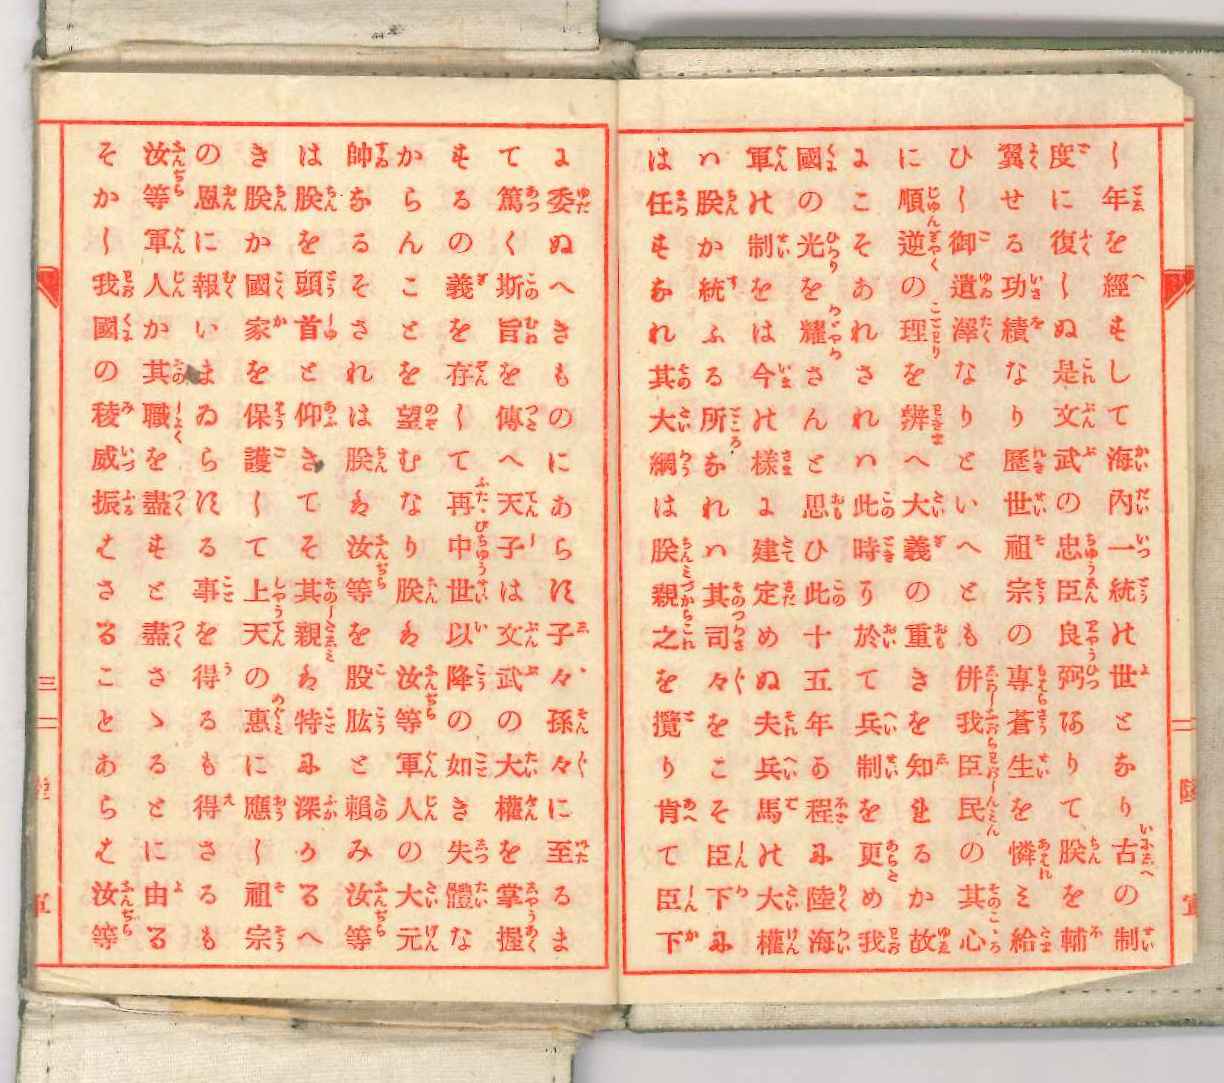 し年を經すして海內一統の世となり古の制
度に復しぬ是文武の忠臣良弼ありて朕を輔
翼せる功績なり歷世祖宗の專蒼生を憐み給
ひし御遺澤なりといへとも併我臣民の其心
に順逆の理を辨へ大義の重きを知れるか故
にこそあれされハ此時に於て兵制を更め我
國の光を耀さんと思ひ此十五年か程に陸海
軍の制をは今の樣に建定めぬ夫兵馬の大權
ハ朕か統ふる所なれハ其司々をこそ臣下に
は任すなれ其大綱は朕親之を攬り肯て臣下
二
に委ぬへきものにあらす子々孫々に至るま
て篤く斯旨を傳へ天子は文武の大權を掌握
するの義を存して再中世以降の如き失體な
からんことを望むなり朕は汝等軍人の大元
帥なるそされは朕は汝等を股肱と賴み汝等
は朕を頭首と仰きてそ其親は特に深かるへ
き朕か國家を保護して上天の惠に應し祖宗
の恩に報いまゐらする事を得るも得さるも
汝等軍人か其職を盡すと盡さゝるとに由る
そかし我國の稜威振はさることあらは汝等
三